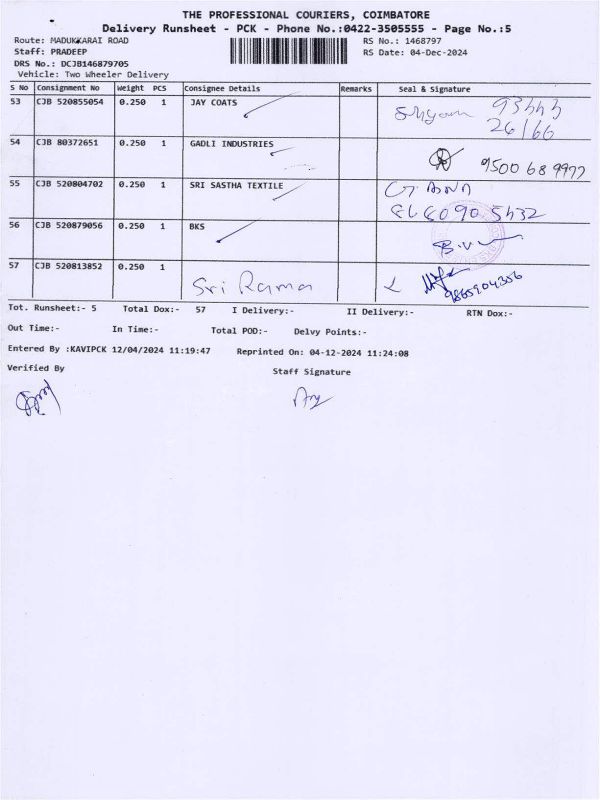 THE PROFESSIONAL COURIERS, COIMBATORE
Delivery Runsheet - PCK - Phone No.:0422-3505555 - Page No.:5
Route: MADUKKARAI ROAD RS No.: 1468797
Staff: PRADEEP RS Date: 04-Dec-2024
DRS No.: DCJB146879705
Vehicle: Two Wheeler Delivery
S No Consignment No Weight PCS Consignee Details Remarks Seal & Signature
53 CJB 520855054 0.250 1 JAY COATS
54 CJB 80372651 0.250 1 GADLI INDUSTRIES
9500 68 9977
55 CJB 520804702 0.250 1 SRI SASTHA TEXTILE
56 CJB 520879056 0.250 1 BKS
B.V
57 CJB 520813852 0.250 1
Sri Rama 9865904356
Tot. Runsheet:- 5 Total Dox:- 57 I Delivery:- II Delivery:- RTN Dox:-
Out Time:- In Time:- Total POD:- Delvy Points:-
Entered By :KAVIPCK 12/04/2024 11:19:47 Reprinted On: 04-12-2024 11:24:08
Verified By Staff Signature